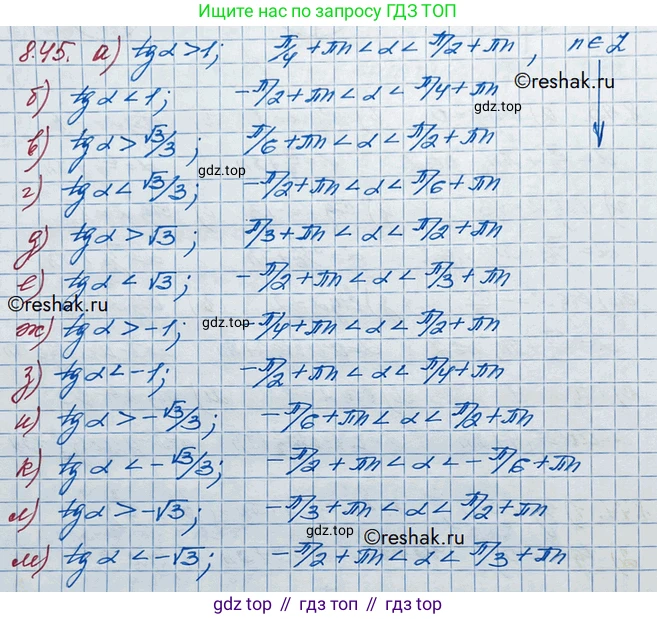 Ищите нас по запросу ГДЗ ТОП
8.45. а) tgα>1; π/4+πn<α<π/2+πn, n∈Z
б) tgα<1; -π/2+πn<α<π/4+πn
©reshak.ru
gdz.top
в) tgα>√3/3; π/6+πn<α<π/2+πn
gdz.top
г) tgα<√3/3; -π/2+πn<α<π/6+πn
д) tgα>√3 π/3+πn<α<π/2+πn
е) tgα<√3; -π/2+πn<α<π/3+πn
©reshak.ru
ж) tgα>-1; -π/4+πn<α<π/2+πn
gdz.top
з) tgα<-1; -π/2+πn<α<π/4+πn
и) tgα>-√3/3; -π/6+πn<α<π/2+πn
к) tgα<-√3/3; -π/2+πn<α<-π/6+πn
л) tgα>-√3; -π/3+πn<α<π/2+πn
gdz.top
©reshak.ru
м) tgα<-√3; -π/2+πn<α<π/3+πn
gdz top // гдз топ // gdz top